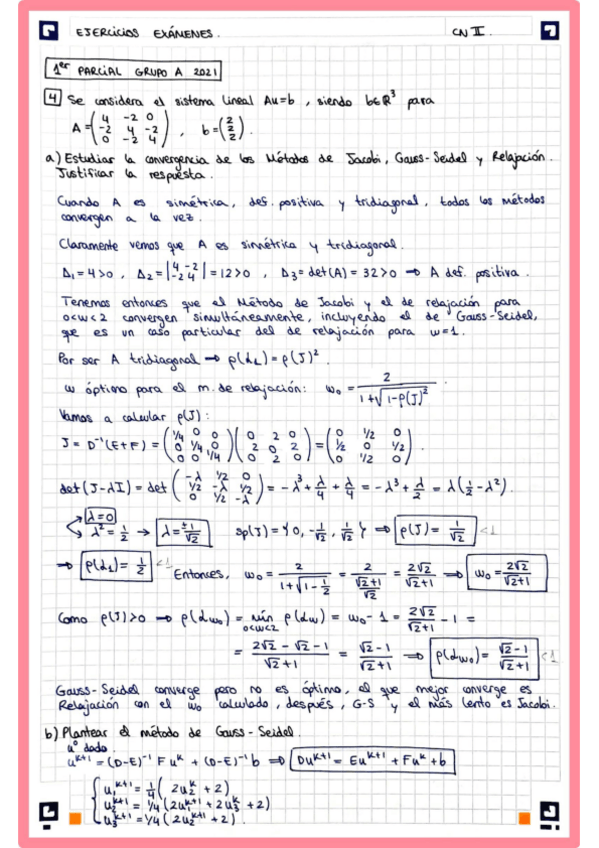 EJERCICIOS EXÁMENES. CN II.
1er PARCIAL GRUPO A 2021
4 Se considera el sistema lineal Au=b, siendo b∈R³ para
A = (4 -2 0; -2 4 -2; 0 -2 4), b = (2; 2; 2).
a) Estudiar la convergencia de los Métodos de Jacobi, Gauss-Seidel y Relajación.
Justificar la respuesta.
Cuando A es simétrica, def. positiva y tridiagonal, todos los métodos
convergen a la vez.
Claramente vemos que A es simétrica y tridiagonal.
Δ₁ = 4 > 0, Δ₂ = |4 -2; -2 4| = 12 > 0, Δ₃ = det(A) = 32 > 0 → A def. positiva.
Tenemos entonces que el Método de Jacobi y el de relajación para
0<w<2 convergen simultáneamente, incluyendo el de Gauss-Seidel,
que es un caso particular del de relajación para w=1.
Por ser A tridiagonal → ρ(L₁) = ρ(J)².
w óptimo para el m. de relajación: w₀ = 2/(1+√(1-ρ(J)²)).
Vamos a calcular ρ(J):
J = D⁻¹(E+F) = (1/4 0 0; 0 1/4 0; 0 0 1/4)(0 2 0; 2 0 2; 0 2 0) = (0 1/2 0; 1/2 0 1/2; 0 1/2 0).
det(J-λI) = det(-λ 1/2 0; 1/2 -λ 1/2; 0 1/2 -λ) = -λ³ + λ/4 + λ/4 = -λ³ + λ/2 = λ(1/2 - λ²).
λ=0
λ² = 1/2 → λ = ±1/√2 Sp(J) = {0, -1/√2, 1/√2} ⇒ ρ(J) = 1/√2 <1
⇒ ρ(L₁) = 1/2 <1 Entonces, w₀ = 2/(1+√(1-1/2)) = 2/((√2+1)/√2) = 2√2/(√2+1) ⇒ w₀ = 2√2/(√2+1)
Como ρ(J)>0 → ρ(Lw₀) = mín 0<w<2 ρ(Lw) = w₀-1 = 2√2/(√2+1) - 1 =
= (2√2-√2-1)/(√2+1) = (√2-1)/(√2+1) ⇒ ρ(Lw₀) = (√2-1)/(√2+1) <1
Gauss-Seidel converge pero no es óptimo, el que mejor converge es
Relajación con el w₀ calculado, después, G-S y el más lento es Jacobi.
b) Plantear el método de Gauss-Seidel.
u⁰ dado.
uᵏ⁺¹ = (D-E)⁻¹ F uᵏ + (D-E)⁻¹ b ⇒ Duᵏ⁺¹ = Euᵏ⁺¹ + Fuᵏ + b
u₁ᵏ⁺¹ = 1/4 (2u₂ᵏ + 2)
u₂ᵏ⁺¹ = 1/4 (2u₁ᵏ⁺¹ + 2u₃ᵏ + 2)
u₃ᵏ⁺¹ = 1/4 (2u₂ᵏ⁺¹ + 2).